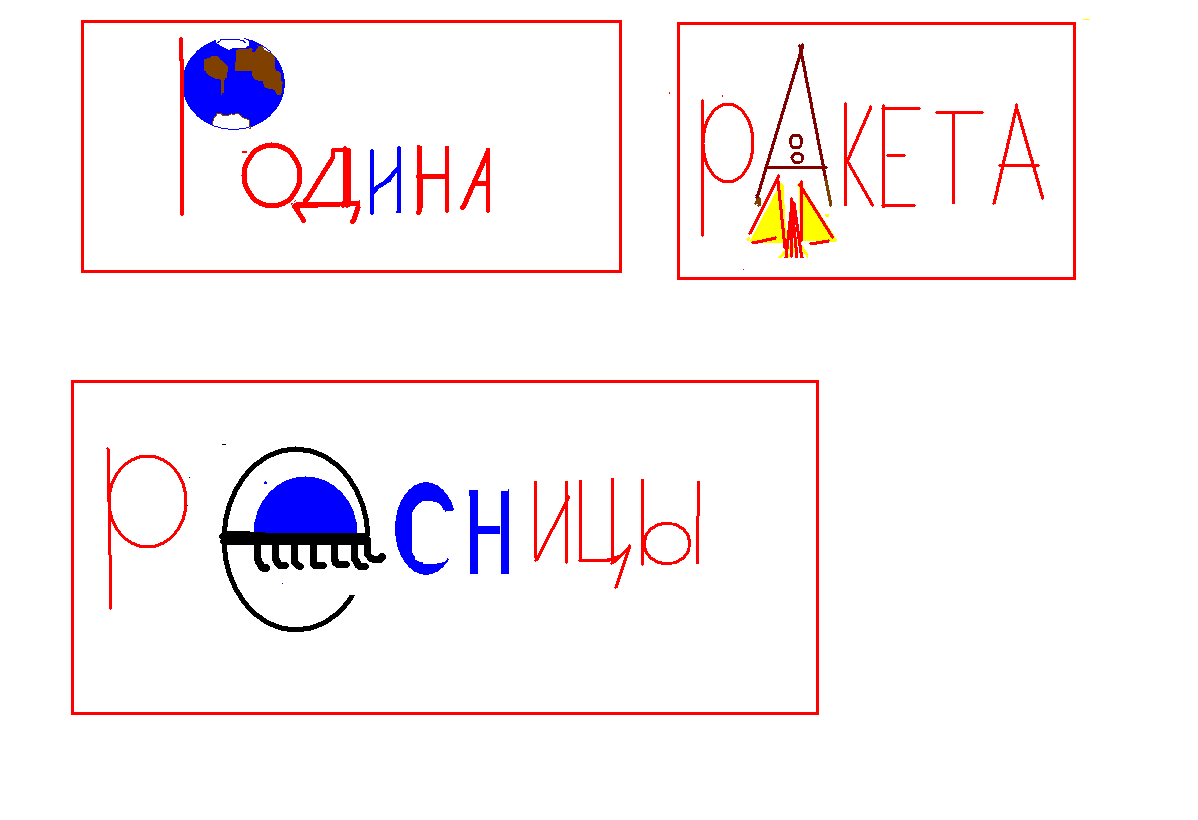 Родина
РАКЕТА
Ресницы